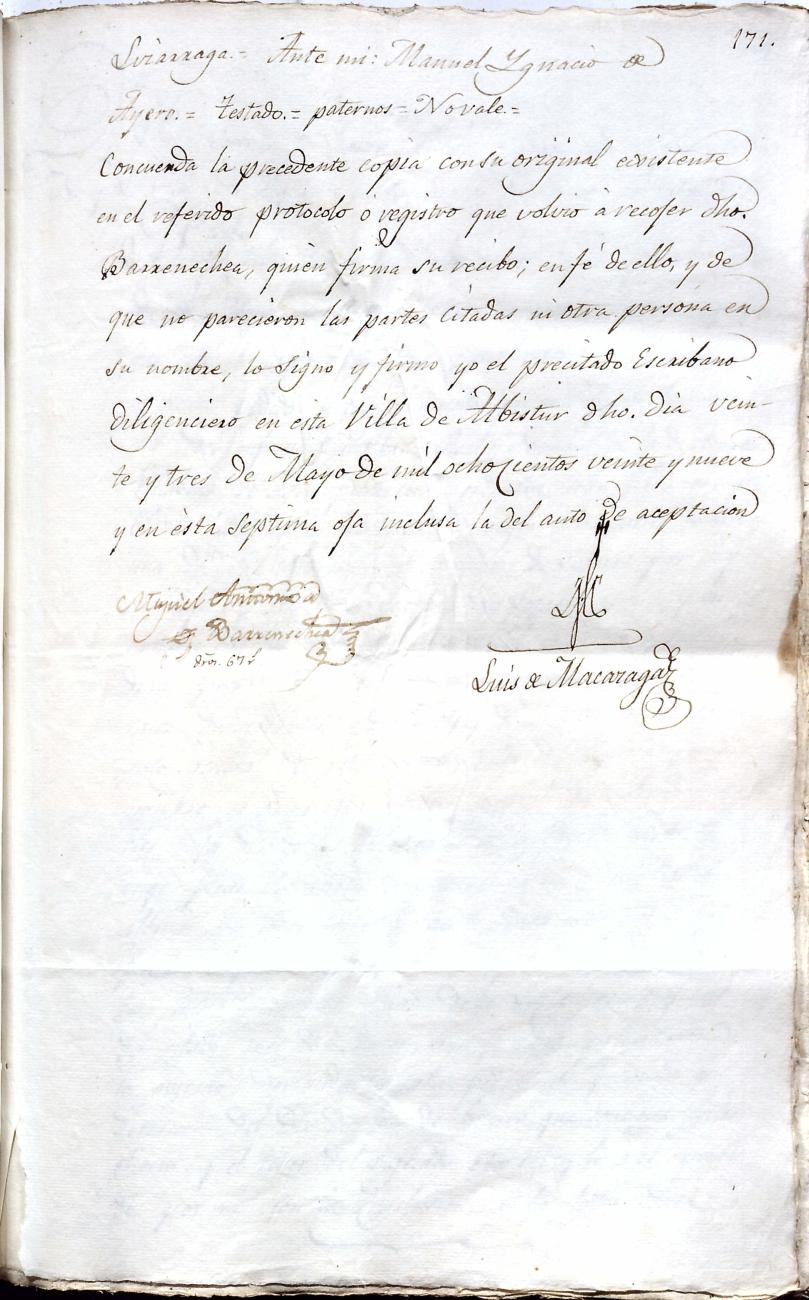 171.
Lviarraga.= Ante mi: Manuel Ygnacio de
Ayero.= testado.= paternos= No vale.=
Concuerda la precedente copia con su original existente
en el referido protocolo ó registro que volvio à recojer dho.
Barrenechea, quien firma su recibo; en fé de ello, y de
que no parecieron las partes citadas ni otra persona en
su nombre, lo signo y firmo yo el precitado Escribano
diligenciero en esta Villa de Albistur dho. dia vein-
te y tres de Mayo de mil ochocientos veinte y nueve
y en èsta septima oja inclusa la del auto de aceptación
Miguel Antonio
de Barrenechea
dros. 67
Luis de Macazaga